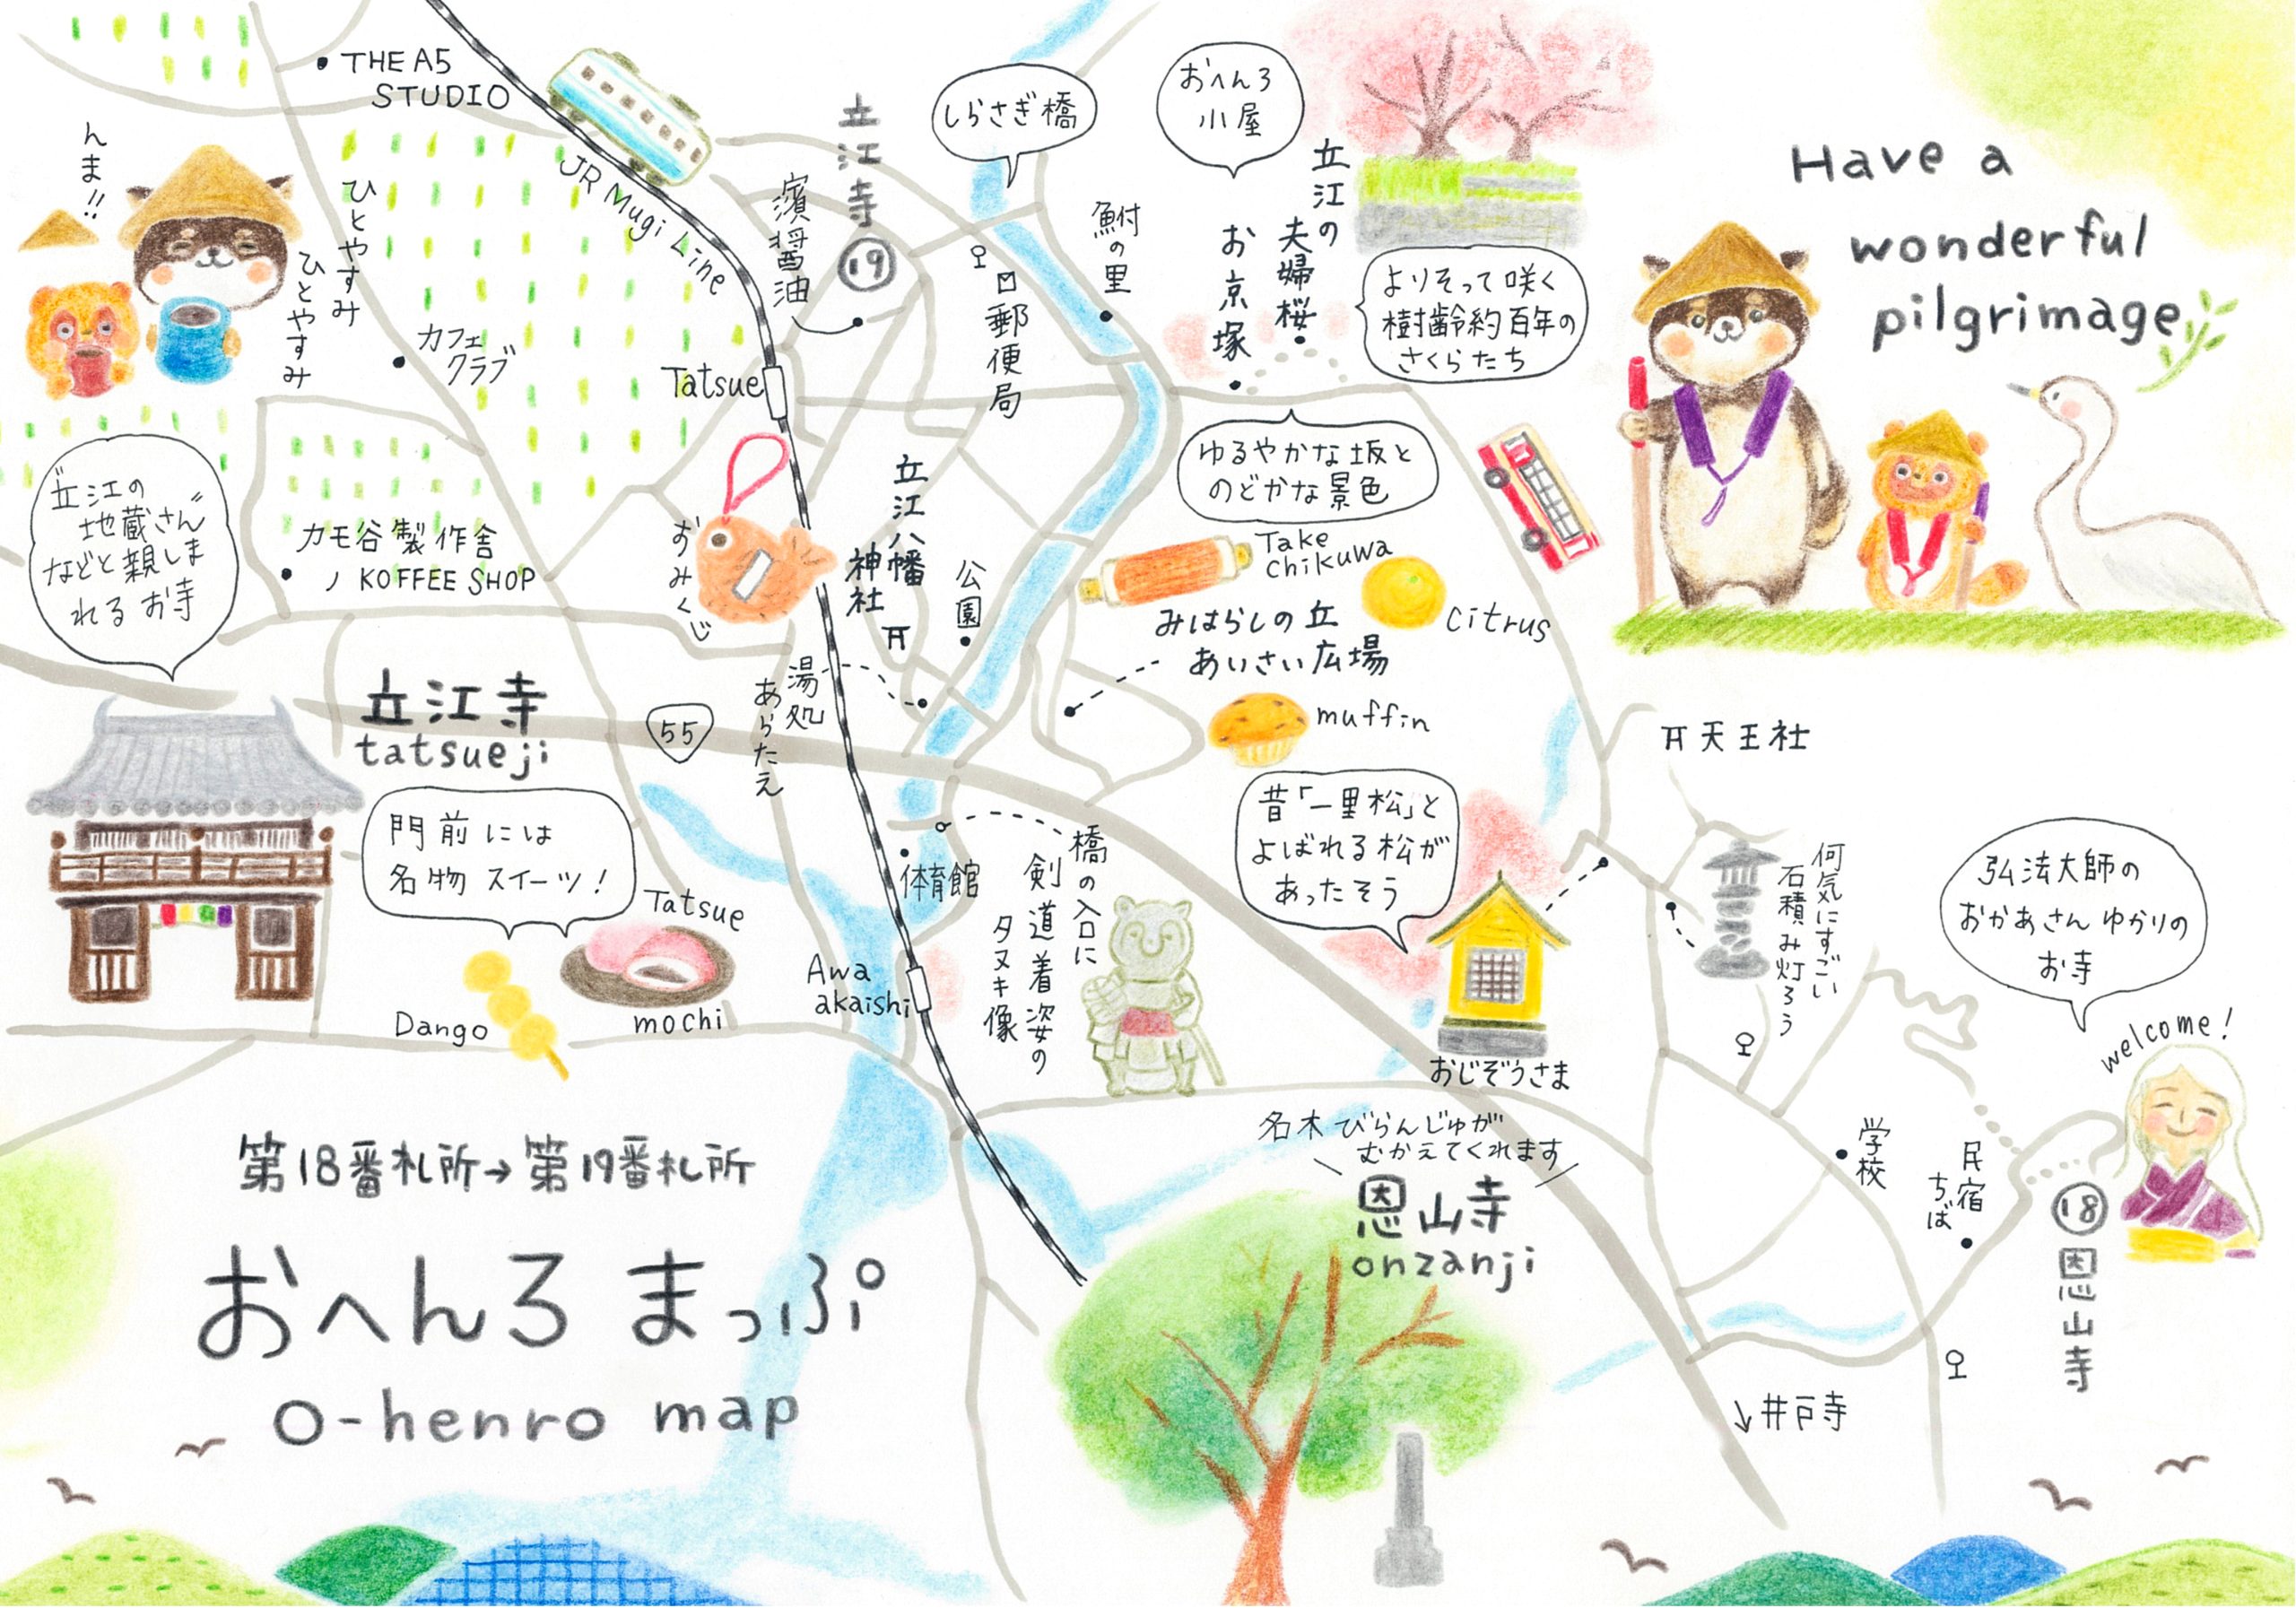 THE A5
STUDIO
んま!!
ひとやすみ
ひとやすみ
カフェ
クラブ
JR Mugi Line
濱醤油
立江寺
⑲
しらさぎ橋
おへんろ
小屋
立江の
夫婦桜
お京塚
よりそって咲く
樹齢約百年の
さくらたち
鮒の里
郵便局
Have a
wonderful
pilgrimage
Tatsue
"立江の
地蔵さん"
などと親しま
れるお寺
カモ谷製作舎
ノ KOFFEE SHOP
おみくじ
立江八幡
神社
公園
ゆるやかな坂と
のどかな景色
Take
chikuwa
citrus
みはらしの丘
あいさい広場
muffin
湯処
あらたえ
55
立江寺
tatsueji
門前には
名物スイーツ!
Dango
Tatsue
mochi
Awa
akaishi
体育館
橋の入口に
剣道着姿の
タヌキ像
昔「一里松」と
よばれる松が
あったそう
おじぞうさま
天王社
何気にすごい
石積み灯ろう
弘法大師の
おかあさんゆかりの
お寺
welcome!
学校
民宿
ちば
⑱
恩山寺
井戸寺
名木びらんじゅが
むかえてくれます
恩山寺
onzanji
第18番札所→第19番札所
おへんろまっぷ
o-henro map